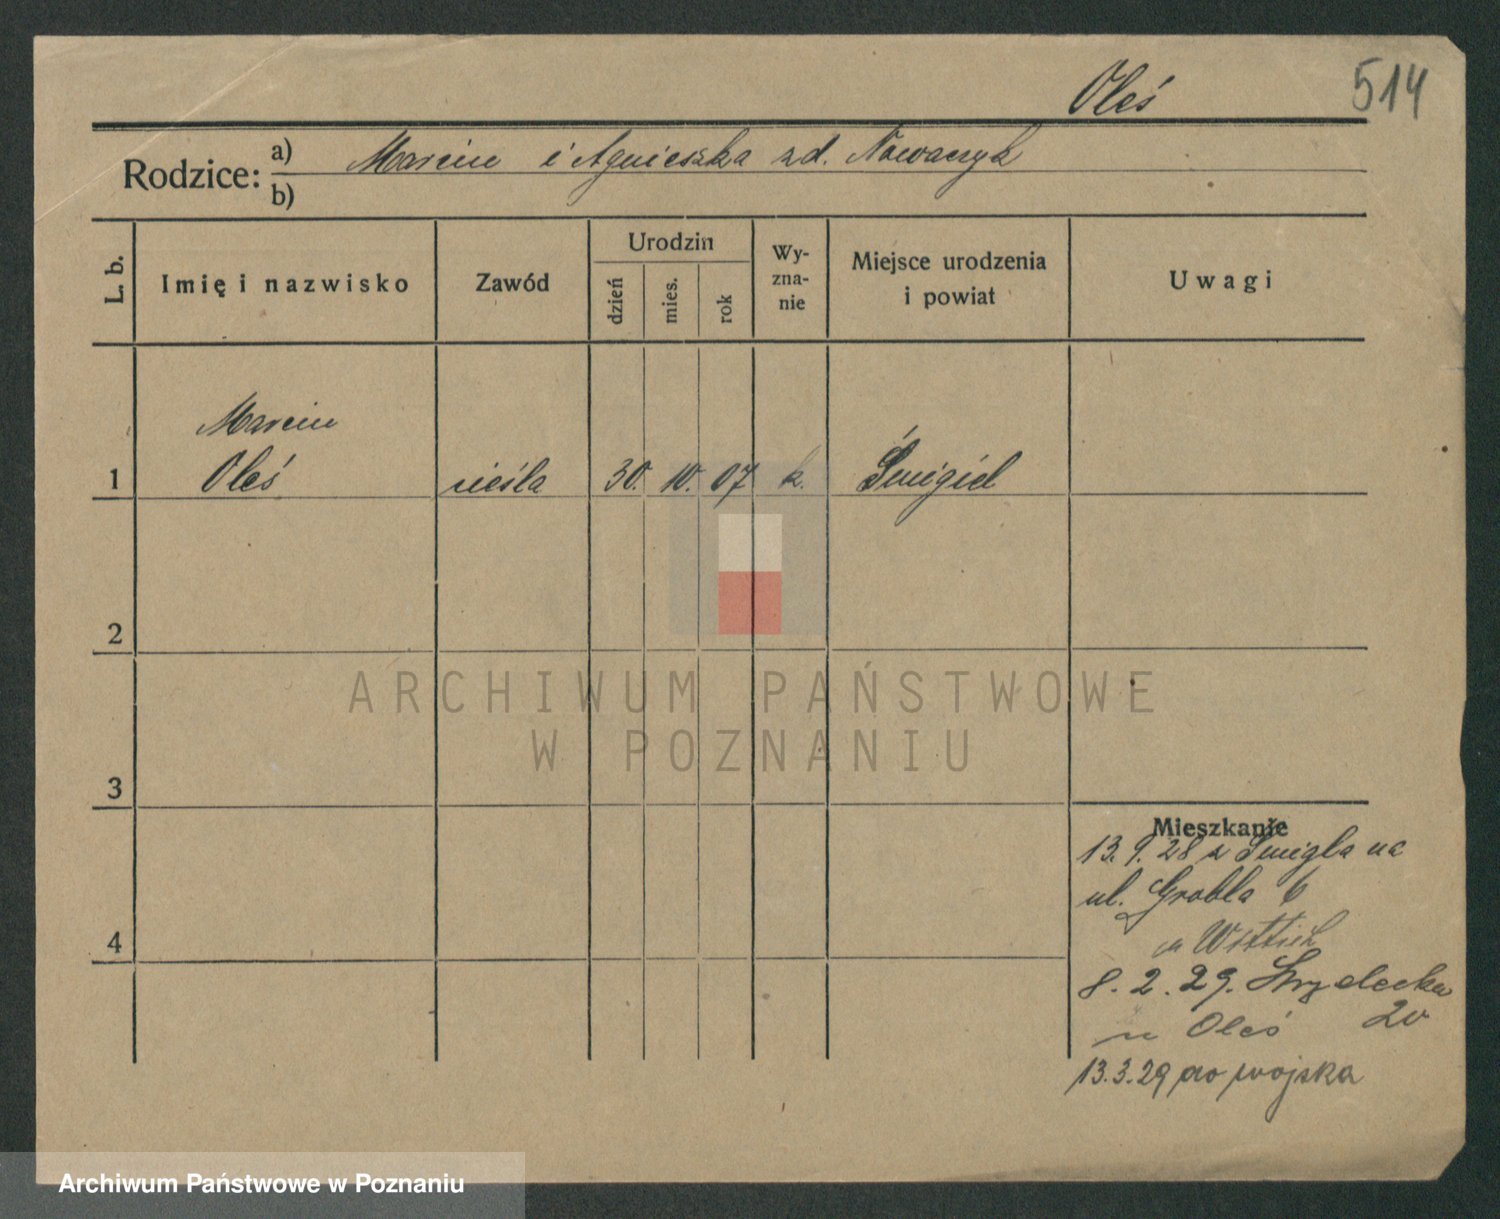 Oleś 514
Rodzice: a) Marcin i Agnieszka zd. Nowaczyk
b)
L. b. Imię i nazwisko Zawód Urodzin dzień mies. rok Wy-zna-nie Miejsce urodzenia i powiat Uwagi
Marcin
1 Oleś cieśla 30. 10. 07 k. Śmigiel
2
ARCHIWUM PAŃSTWOWE
W POZNANIU
3
Mieszkanie
13.9.28 z Śmigla na
ul. Grobla 6
4
8.2.29. Strzelecka
20
u Oleś
13.3.29 do wojska
Archiwum Państwowe w Poznaniu